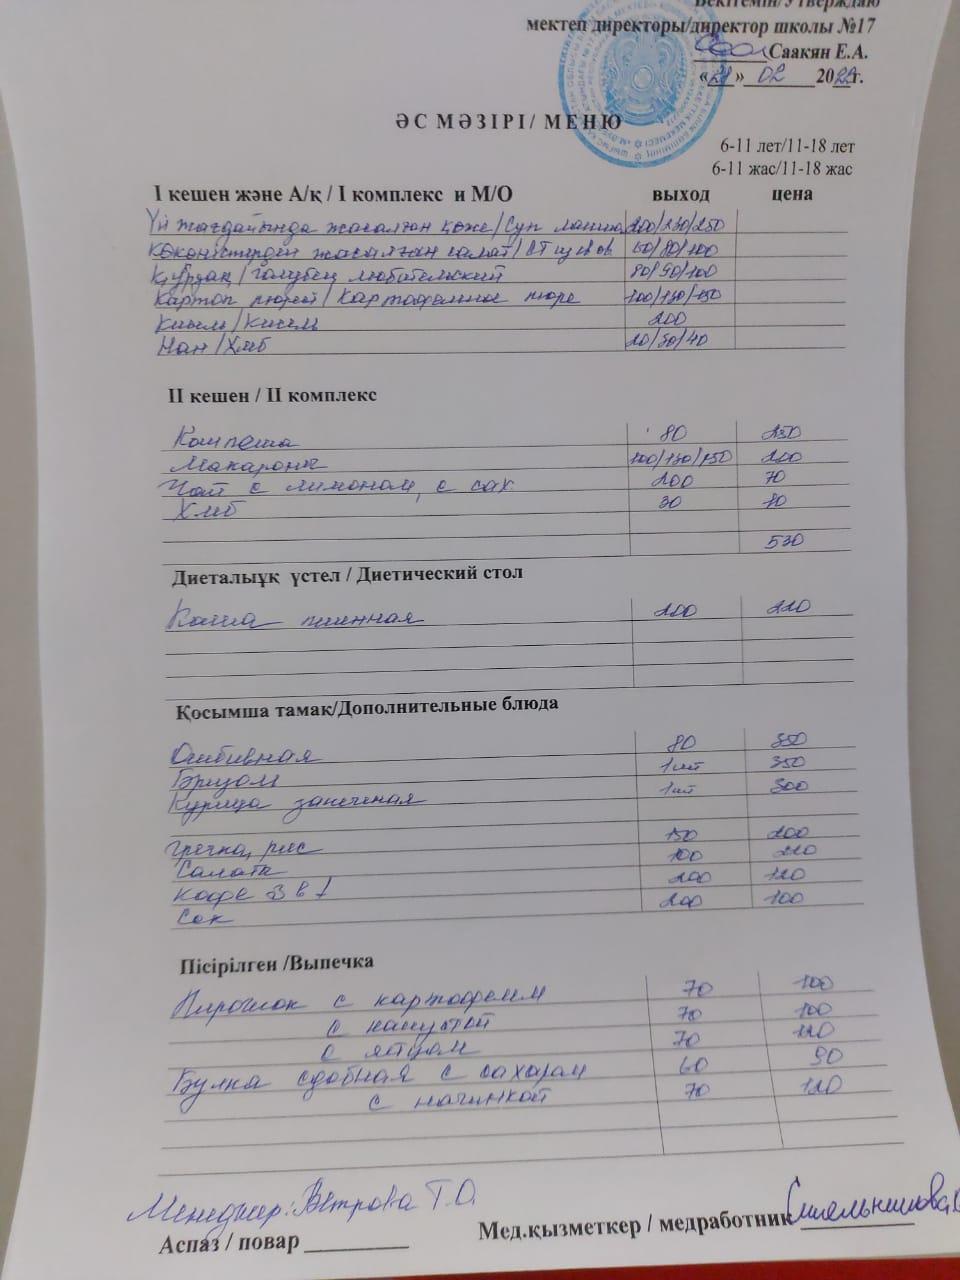 Бекітемін/Утверждаю
мектеп директоры/директор школы №17
Саакян Е.А.
«21» 02 2022г.
ӘС МӘЗІРІ/ МЕНЮ
6-11 лет/11-18 лет
6-11 жас/11-18 жас
І кешен және А/қ / І комплекс и М/О выход цена
Үй жағдайында жасалған көже/Суп лапша 200/230/250
Көкөністерден жасалған салат/ 60/80/100
Қуырдақ/Голубец любительский 80/90/100
Картоп пюресі/Картофельное пюре 100/130/150
Кисель/Кисель 200
Нан/Хлеб 20/30/40
ІІ кешен / ІІ комплекс
80 250
Макароны 100/130/150 200
Чай с лимоном, с сах. 200 70
Хлеб 30 10
530
Диеталыұқ үстел / Диетический стол
Каша пшенная 200 220
Қосымша тамақ/Дополнительные блюда
Отбивная 80 350
Бризоль 1шт 350
Курица запеченая 1шт 300
Гречка, рис 150 200
Салаты 100 220
Кофе 3 в 1 200 120
Сок 200 100
Пісірілген /Выпечка
Пирожок с картофелем 70 100
с капустой 70 100
с яйцом 70 120
Булка сдобная с сахаром 60 90
с начинкой 70 120
Менеджер: Ветрова Т.О.
Мед.қызметкер / медработник
Аспаз / повар